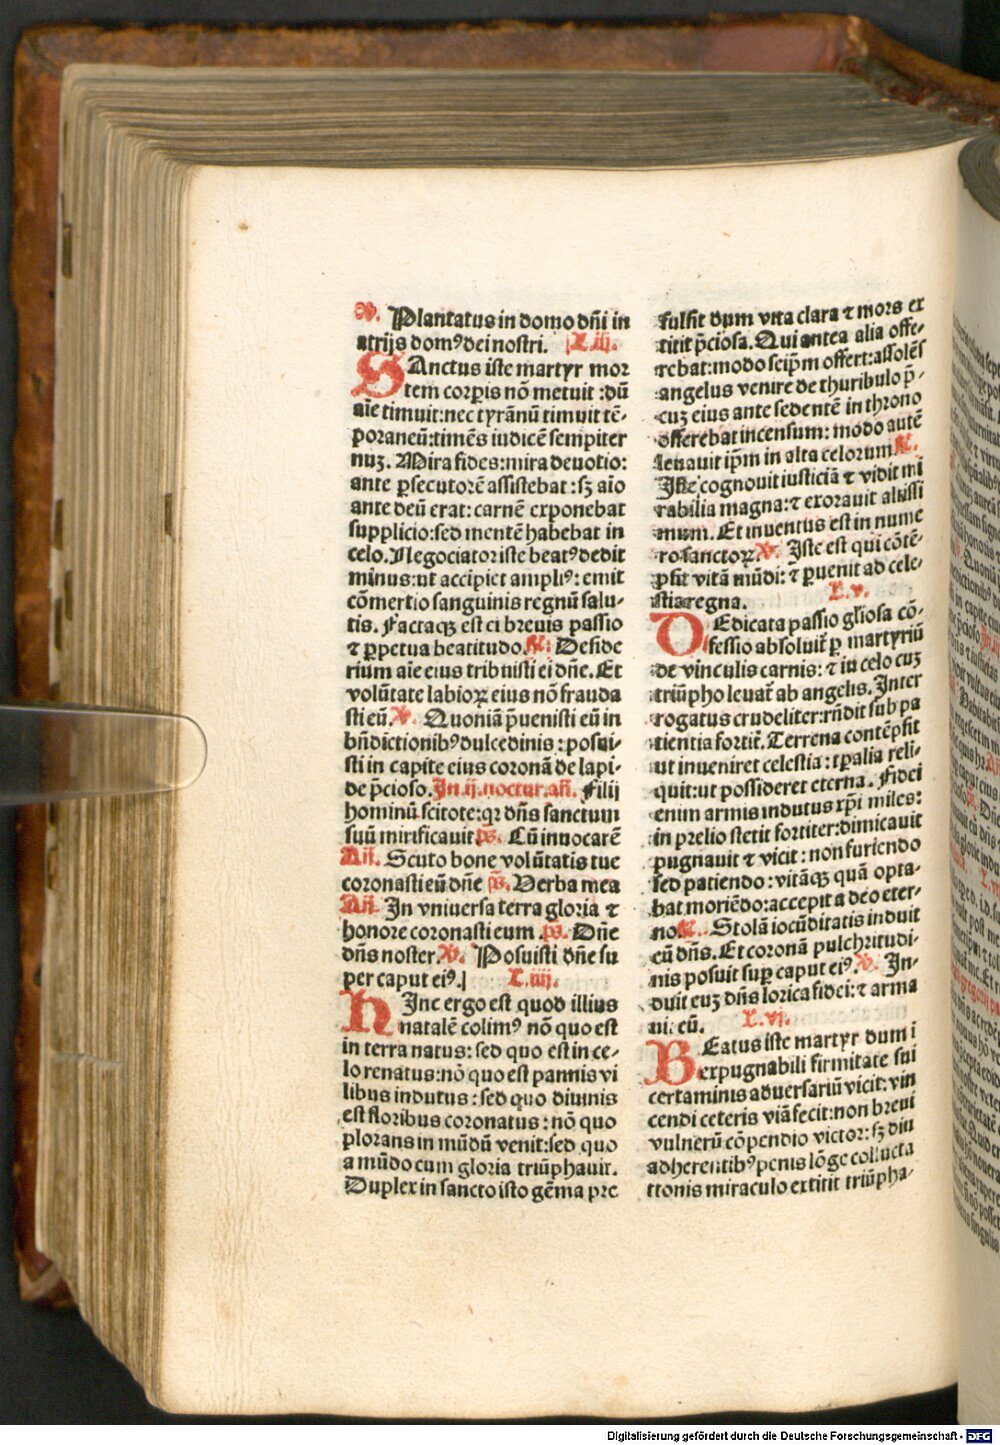 V. Plantatus in domo dñi in
atrijs domꝰ dei nostri. L.iij.
SAnctus iste martyr mor
tem corpis nõ metuit :dũ
aĩe timuit:nec tyrãnũ timuit tẽ-
poraneũ:timẽs iudicẽ sempiter
nuz. Mira fides:mira deuotio:
ante psecutorẽ assistebat :sz aĩo
ante deũ erat: carnẽ exponebat
supplicio:sed mentẽ habebat in
celo. Negociator iste beatꝰ dedit
minus:ut accipiet ampliꝰ: emit
cõmertio sanguinis regnũ salu-
tis. Factaqꝫ est ei breuis passio
⁊ ppetua beatitudo. R: Deside
rium aĩe eius tribuisti ei dñe. Et
volũtate labioꝝ eius nõ frauda
sti eũ. V. Quoniã p̃uenisti eũ in
bñdictionibꝰ dulcedinis : posui-
sti in capite eius coronã de lapi-
de p̃cioso. In.ij.noctur.añ. Filij
hominũ scitote:qz dñs sanctum
suũ mirificauit ps. Cũ inuocarẽ
Añ. Scuto bone volũtatis tue
coronasti eũ dñe ps. Verba mea
Añ. In vniuersa terra gloria ⁊
honore coronasti eum .ps. Dñe
dñs noster. V. Posuisti dñe su
per caput eiꝰ. L.iiij.
HInc ergo est quod illius
natalẽ colimꝰ nõ quo est
in terra natus: sed quo est in ce-
lo renatus:nõ quo est pannis vi
libus indutus : sed quo diuinis
est floribus coronatus : nõ quo
plorans in mũdũ venit:sed quo
a mũdo cum gloria triũphauit.
Duplex in sancto isto gẽma pre
fulsit dum vita clara ⁊ mors ex
titit p̃ciosa. Qui antea alia offe-
rebat:modo seipm̃ offert:assolẽs
angelus venire de thuribulo p̃-
cuz eius ante sedentẽ in throno
offerebat incensum: modo autẽ
leuauit ipm̃ in alta celorum R.
Iste cognouit iusticiã ⁊ vidit mi
rabilia magna:⁊ exorauit altissi
mum. Et inuentus est in nume
ro sanctoꝝ. V. Iste est qui cõtẽ-
psit vitã mũdi: ⁊ puenit ad cele-
stia regna. L.v.
DEdicata passio gl̃iosa cõ-
fessio absoluit p martyriũ
de vinculis carnis: ⁊ in celo cuz
triũpho leuat̃ ab angelis. Inter
rogatus crudeliter:rñdit sub pa
tientia fortit̃. Terrena contẽpsit
ut inueniret celestia : tp̃alia reli-
quit:ut possideret eterna. Fidei
enim armis indutus xp̃i miles:
in prelio stetit fortiter:dimicauit
pugnauit ⁊ vicit : non furiendo
sed patiendo : vitãqꝫ quã opta-
bat moriẽdo:accepit a deo eter-
no. R. Stolã iocũditatis induit
eũ dñs. Et coronã pulchritudi-
nis posuit sup caput eiꝰ. V. In-
duit euz dñs lorica fidei: ⁊ arma
uit eũ. L.vj.
BEatus iste martyr dum i
expugnabili firmitate sui
certaminis aduersariũ vicit: vin
cendi ceteris viã fecit:non breui
vulnerũ cõpendio victor: sz diu
adherentibꝰ penis lõge collucta
ttonis miraculo extitit triũpha-
Digitalisierung gefördert durch die Deutsche Forschungsgemeinschaft - DFG